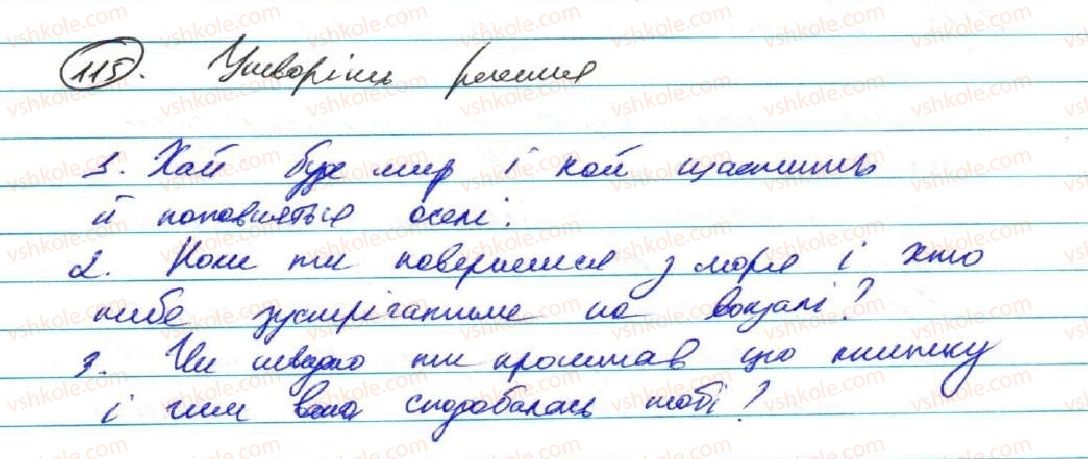 115. Утворіть речення
1. Хай буде мир і хай щастить
й наповняться оселі.
2. Коли ти повернешся з моря і хто
тебе зустрічатиме на вокзалі?
3. Чи швидко ти прочитав цю книжку
і чим вона сподобалась тобі?